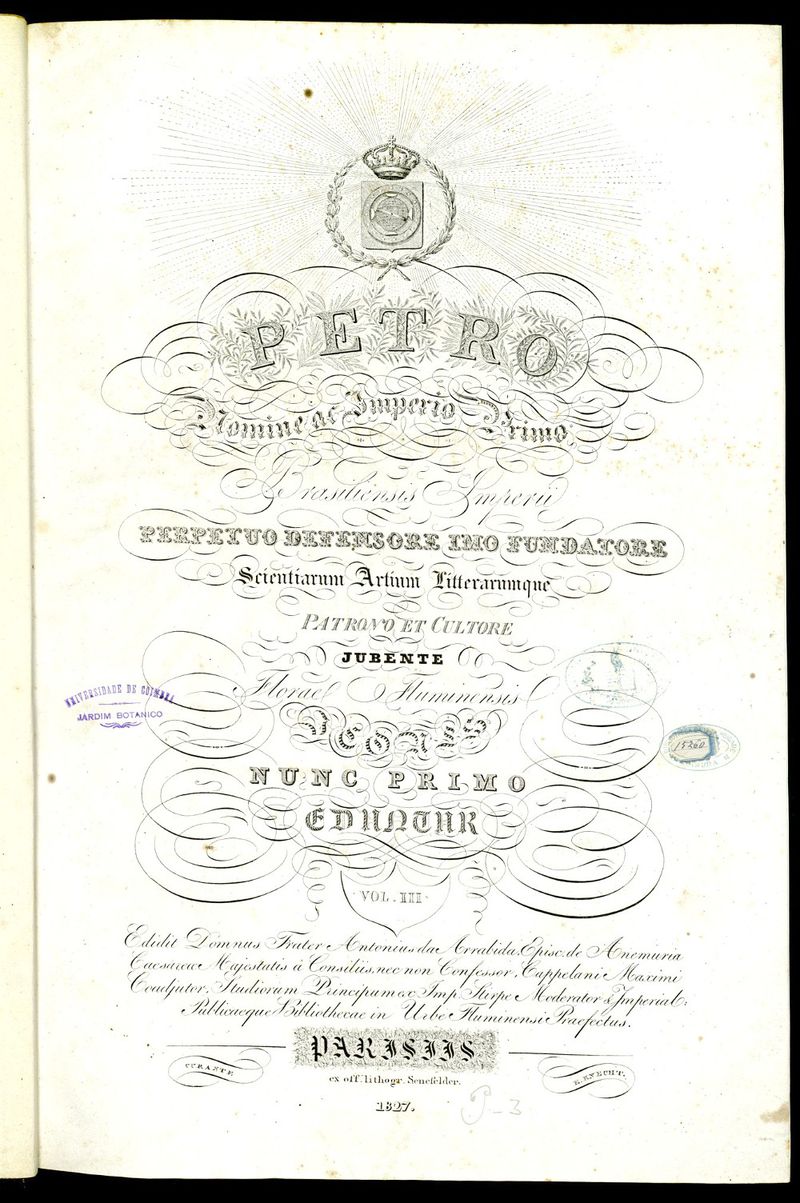 PETRO
Nomine ac Imperio Primo
Brasiliensis Imperii
PERPETUO DEFENSORE IMO FUNDATORE
Scientiarum Artium Litterarumque
PATRONO ET CULTORE
JUBENTE
Florae Fluminensis
ICONES
NUNC PRIMO
EDUNTUR
UNIVERSIDADE DE COIMBRA
JARDIM BOTANICO
15260
VOL. III.
Edidit Domnus Frater Antonius da Arrabida, Episc. de Anemuria
Caesareae Majestatis à Consiliis, nec non Confessor, Cappelani Maximi
Coadjutor, Studiorum Principum ex Imp. Stirpe Moderator & Imperial:
Publicaeque Bibliothecae in Urbe Fluminensi Praefectus.
PARISIIS
CURANTE
E. KNECHT.
ex off. lithogr. Senefelder.
1827.
P-3